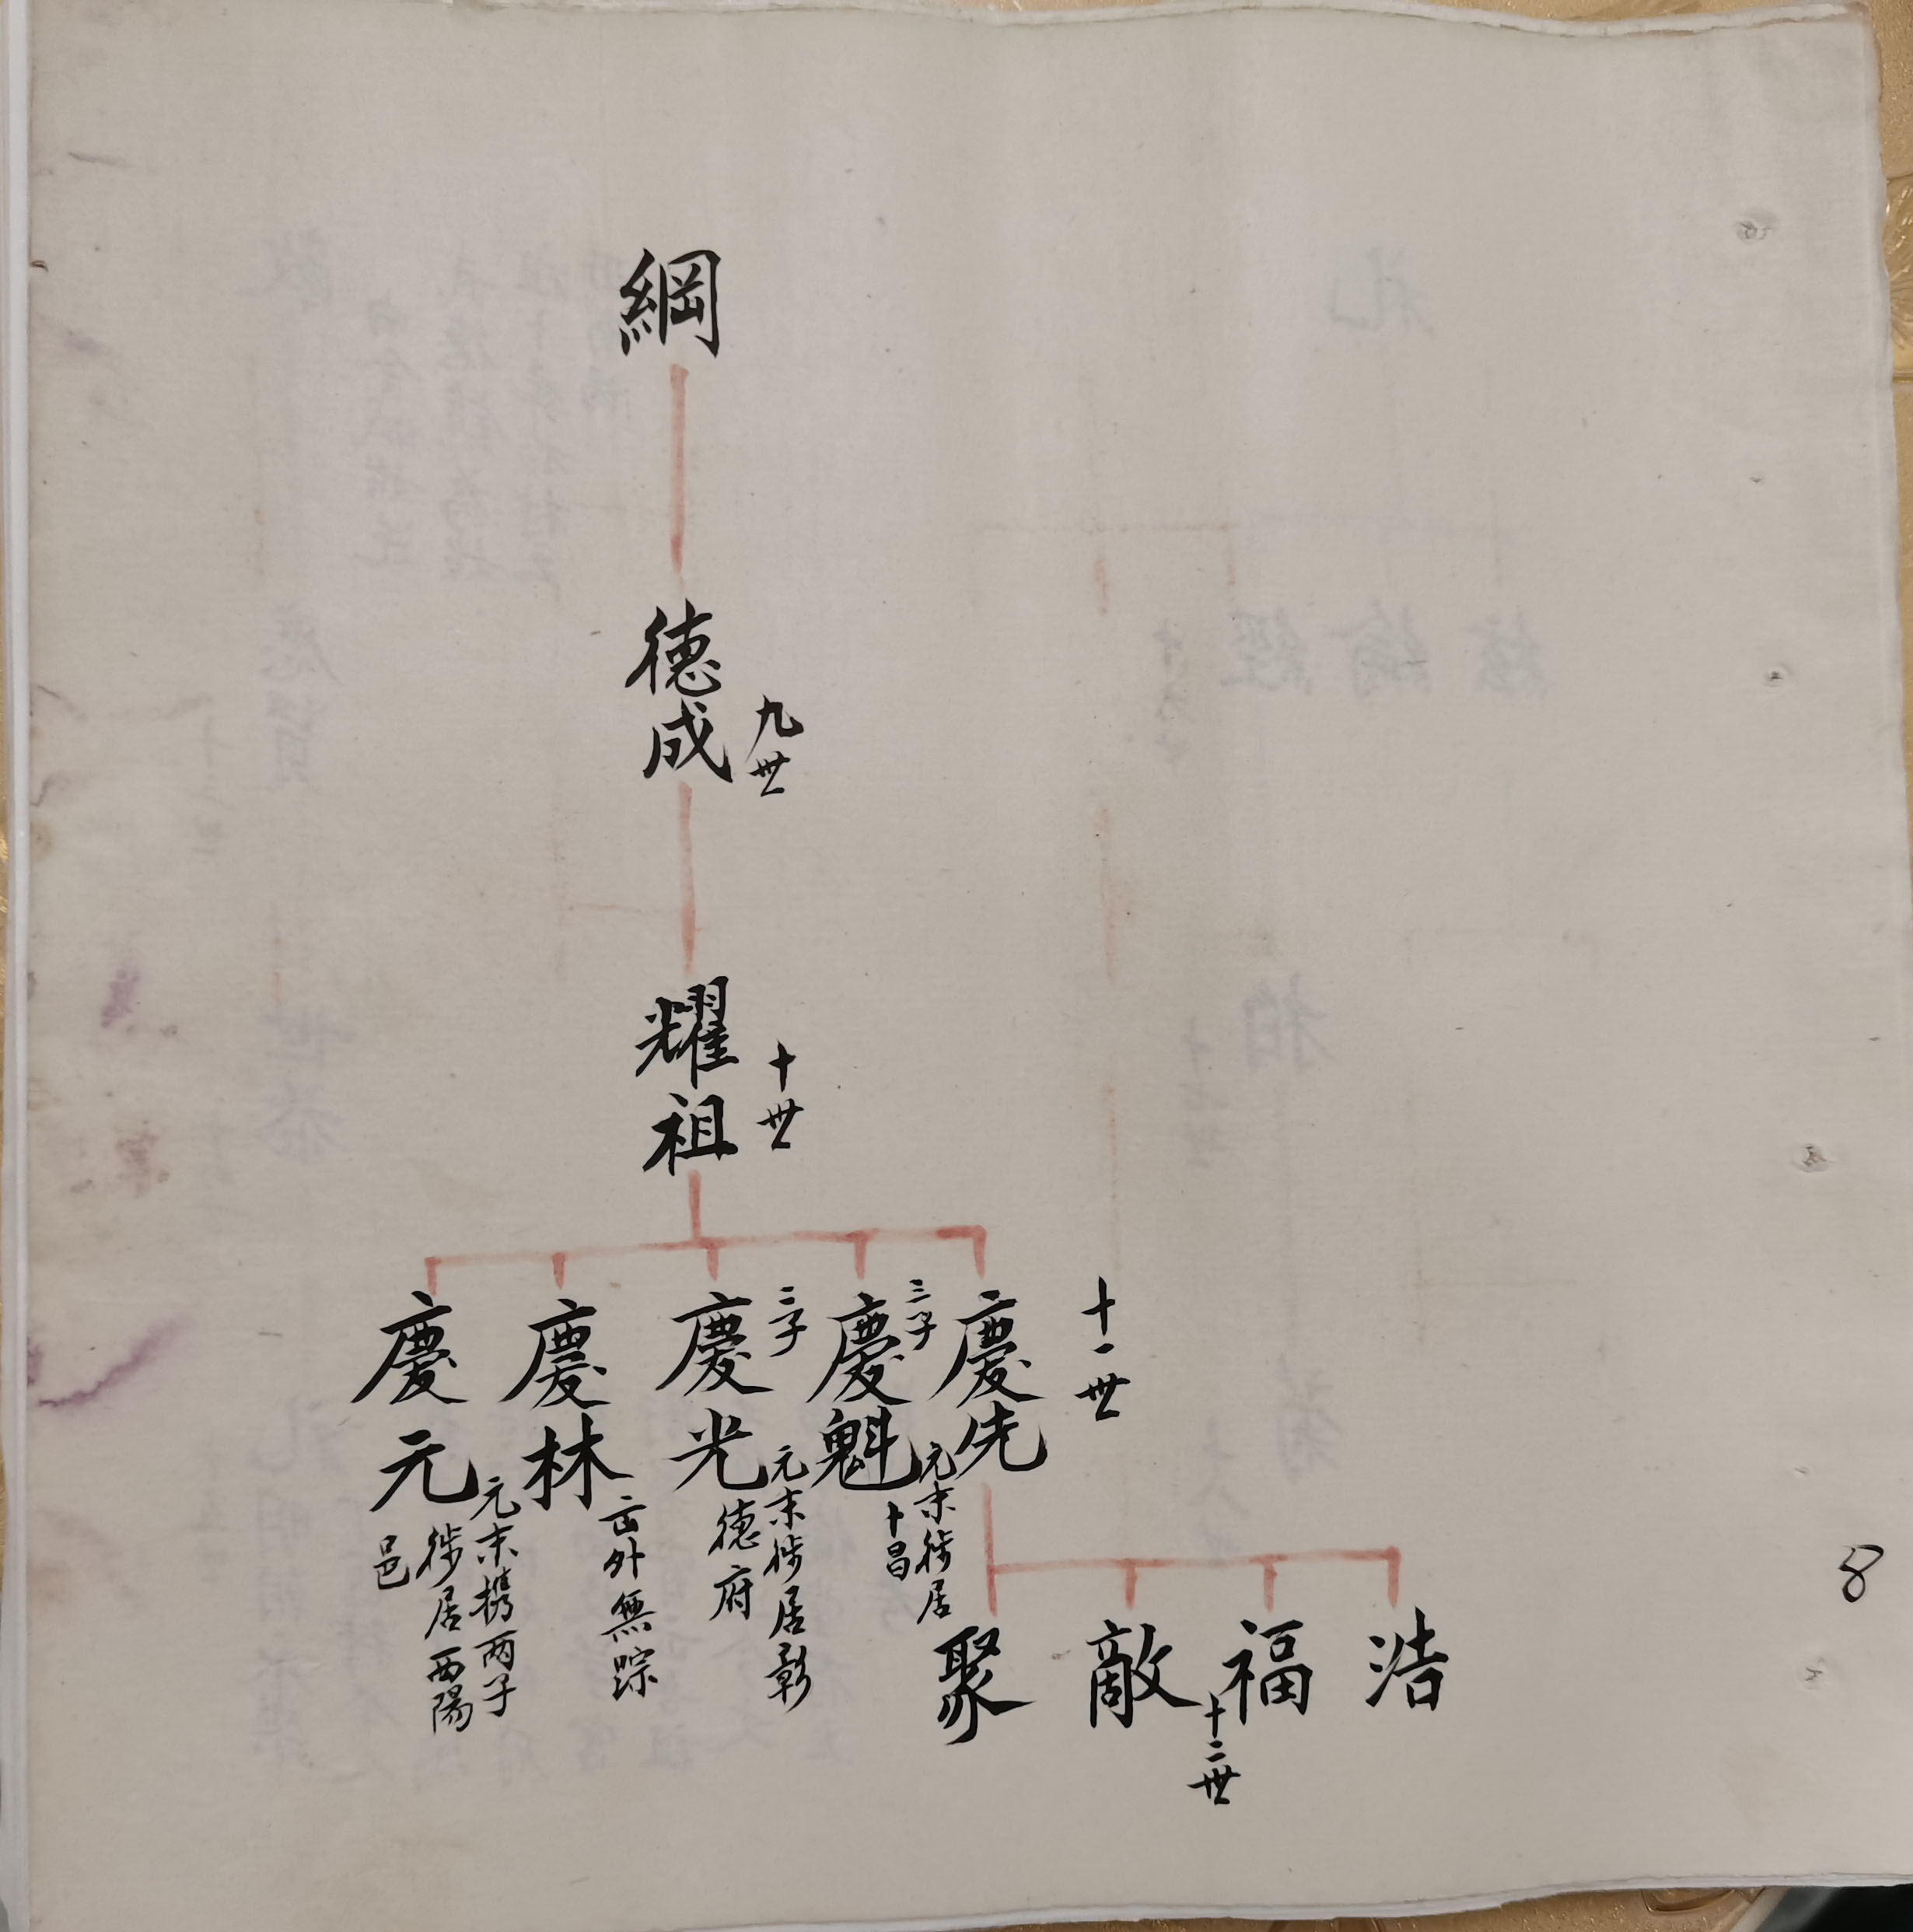 綱
德成
九世
耀祖
十世
十一世
慶先
三子
慶魁
元末徙居
十昌
二子
慶光
元末徙居彰
德府
慶林
出外無踪
慶元
元末携两子
徙居西陽
邑
浩
福
敵
聚
十二世
8